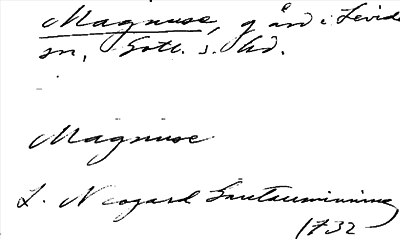 Magnuse, gård i Levide
sn, Gotl. s. hd.
Magnuse
L. Neogard Gautauminning
1732